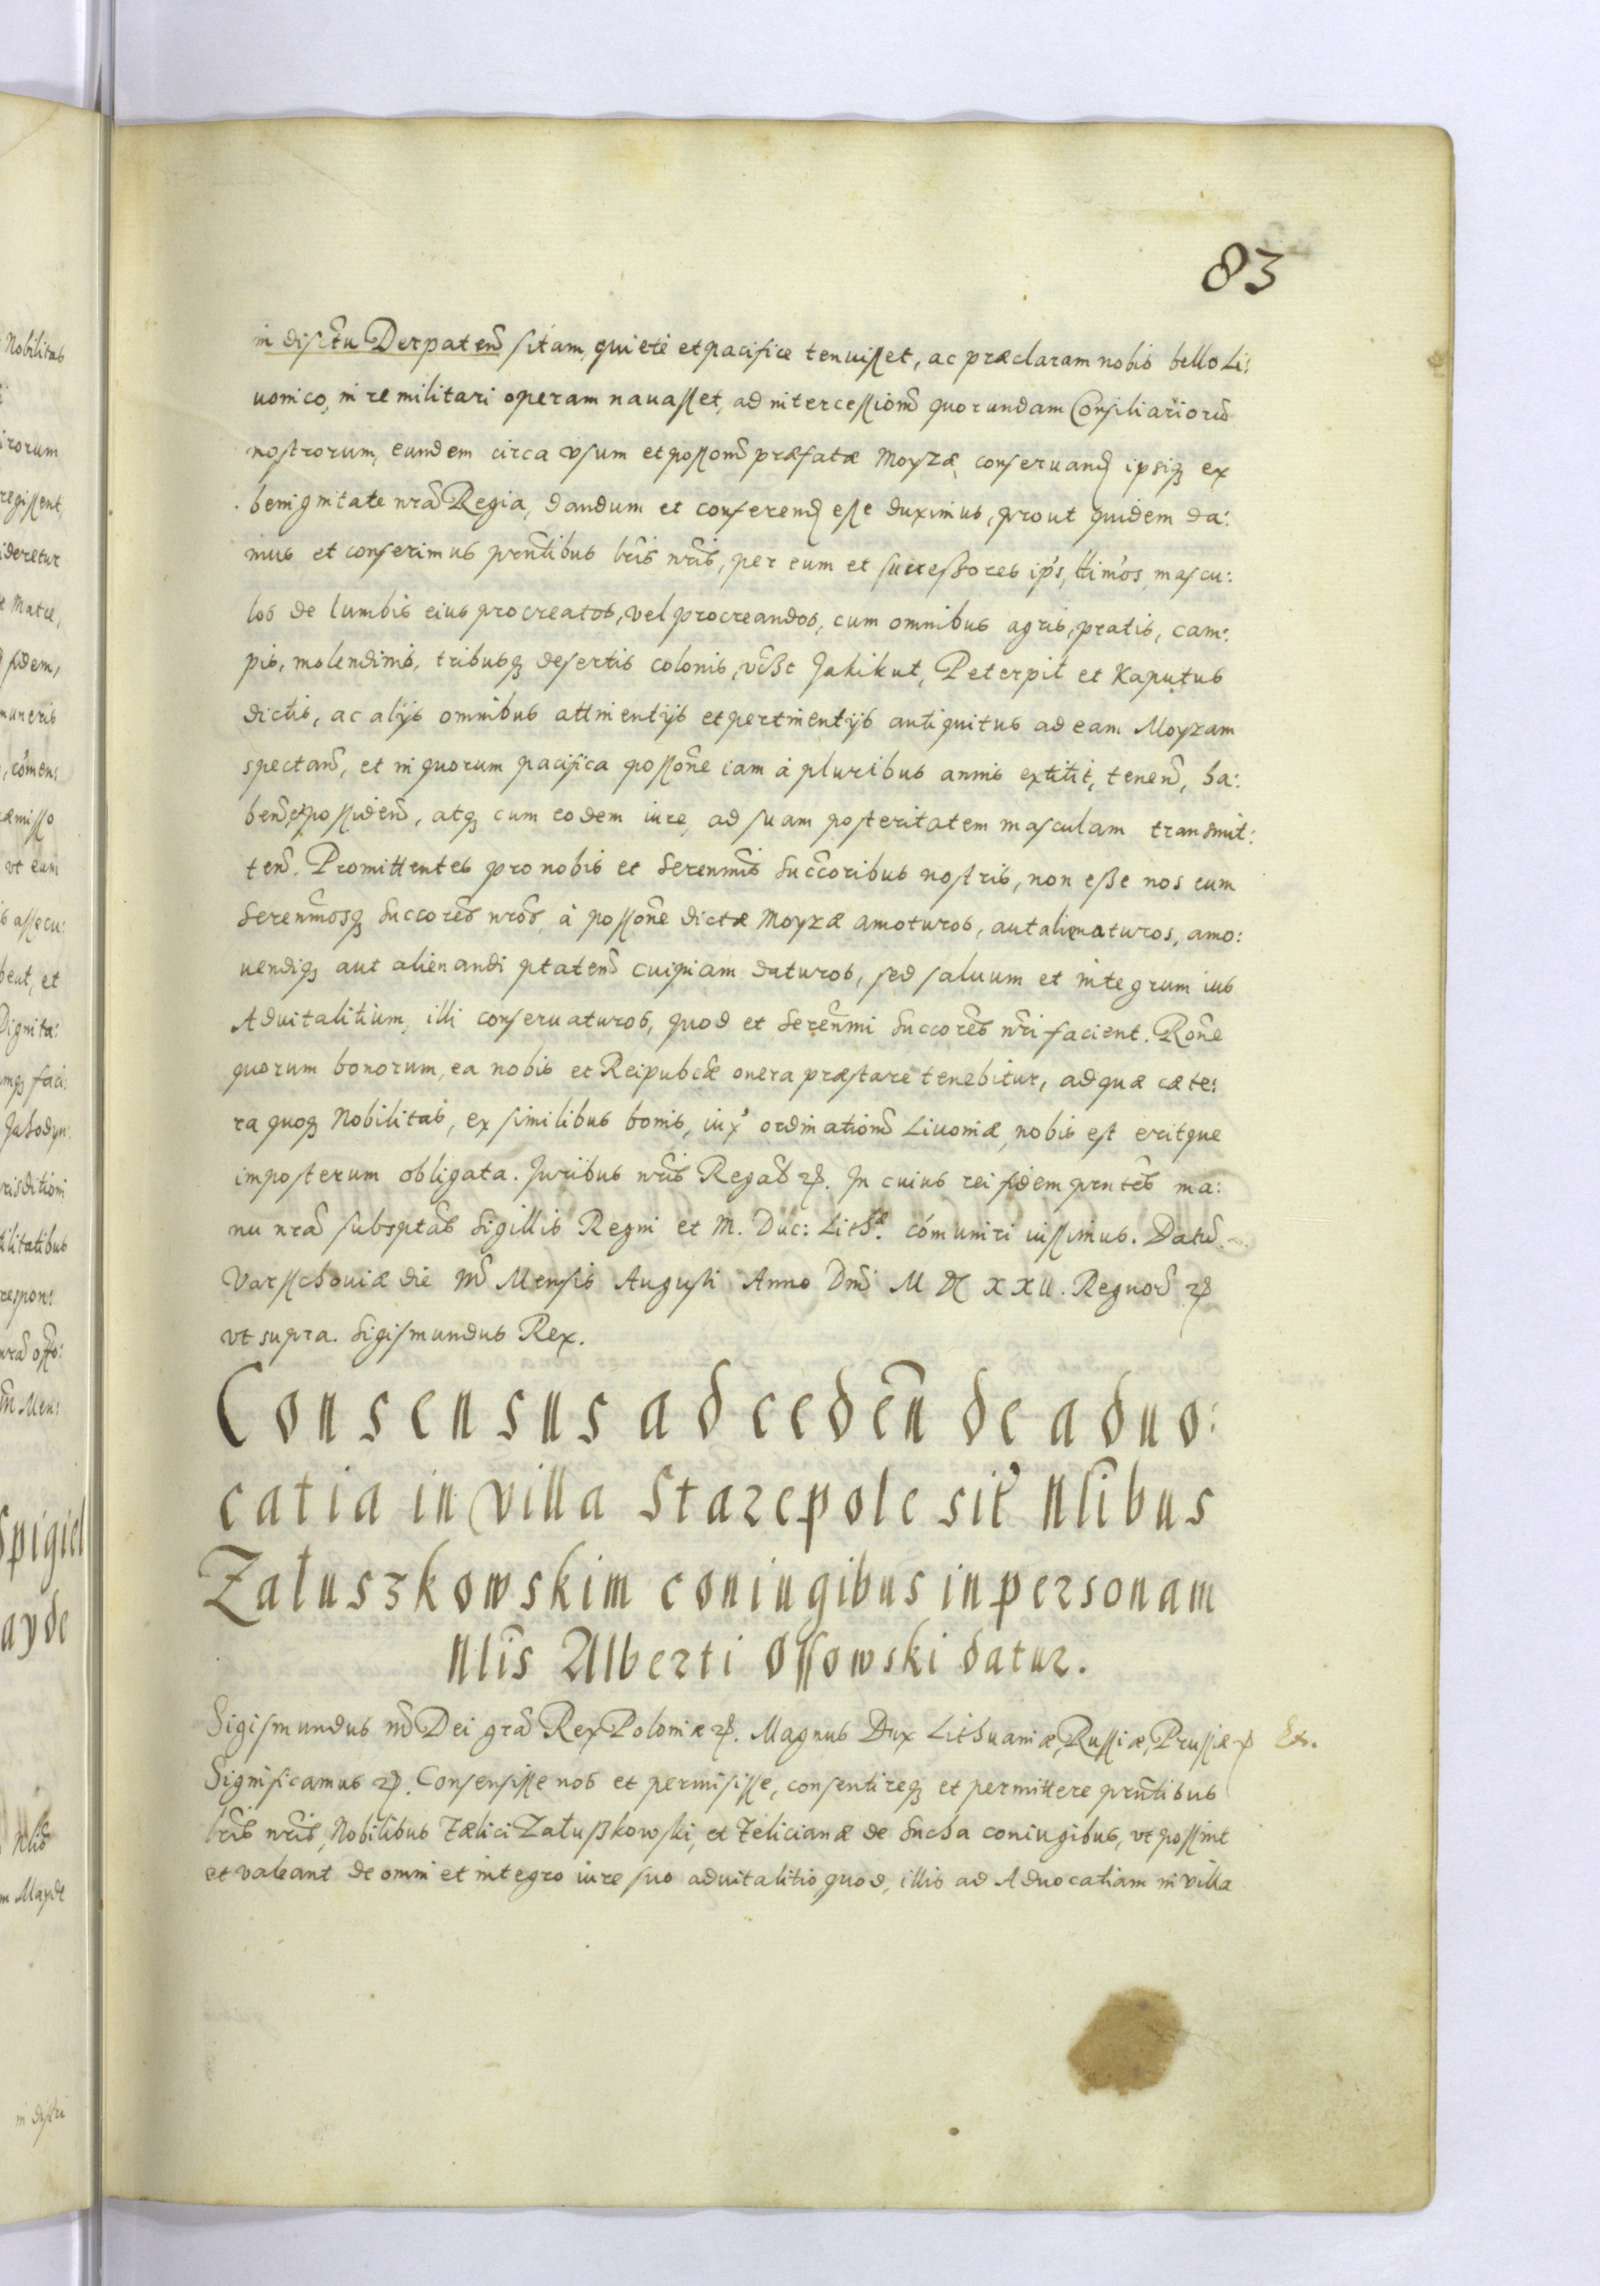 83
in dis̃ctu Derpateñ sitam, quiete et pacifice tenuisset, ac præclaram nobis bello Li:
uonico, in re militari operam nauasset, ad intercessionẽ quorundam Consiliariorũ
nostrorum, eundem circa vsum et possionẽ præfatæ Moyzæ conseruand ipsiq̃ ex
benignitate nrã Regia, dandum et conferend esse duximus, prout quidem da:
mus et conferimus prñtibus lr̃is nr̃is, per eum et successores ips, ltimos, mascu:
los de lumbis eius procreatos, vel procreandos, cum omnibus agris, pratis, cam:
pis, molendinis, tribusq̃ desertis colonis, vc̃ßt Jakikut, Peterpil et Kaputus
dictis, ac alijs omnibus attinentijs et pertinentijs antiquitus ad eam Moyzam
spectañ, et in quorum pacifica possiõne iam à pluribus annis extitit, teneñ, ha:
beñ et possideñ, atq̃ cum eodem iure, ad suam posteritatem masculam transmit:
teñ. Promittentes pro nobis et Serenm̃is Succõribus nostris, non eße nos eum
Serenm̃osq̃ Succorẽs nrõs, à possõne dictæ Moyzæ amoturos, aut alienaturos, amo:
uendiq̃ aut alienandi ptatem̃ cuipiam daturos, sed saluum et integrum ius
Aduitalitium, illi conseruaturos, quod et Serenm̃i Succorẽs nr̃i facient. Rõne
quorum bonorum, ea nobis et Reipubcæ onera præstare tenebitur, ad quæ cæte:
ra quoq̃ Nobilitas, ex similibus bonis, iux̃ ordinationẽ Liuoniæ, nobis est eritque
imposterum obligata. Juribus nr̃is Regal̃ ꝛc. In cuius rei fidem prñtes ma:
nu nrã subsptãs Sigillis Regni et M. Duc: Lith: cõmuniri iussimus. Datũ
Varsschouiæ die Mensis Augusti Anno Dnĩ M DC XXII. Regnorũ ꝛc
vt supra. Sigismundus Rex.
Consensus ad cedeñ de aduo:
catia in villa Starepole sit̃ Nlibus
Załuszkowskim coniugibus in personam
Nlis Alberti Ossowski datur.
Sigismundus Dei grã Rex Poloniæ ꝛc. Magnus Dux Lithuaniæ, Russiæ, Prussiæ ꝛc Etc.
Significamus ꝛc. Consensisse nos et permisisse, consentireq̃ et permittere prñtibus
lr̃is nr̃is, Nobilibus Fælici Załußkowski, et Felicianæ de Sucha coniugibus, vt possint
et valeant de omni et integro iure suo aduitalitio, quod, illis ad Aduocatiam in villa